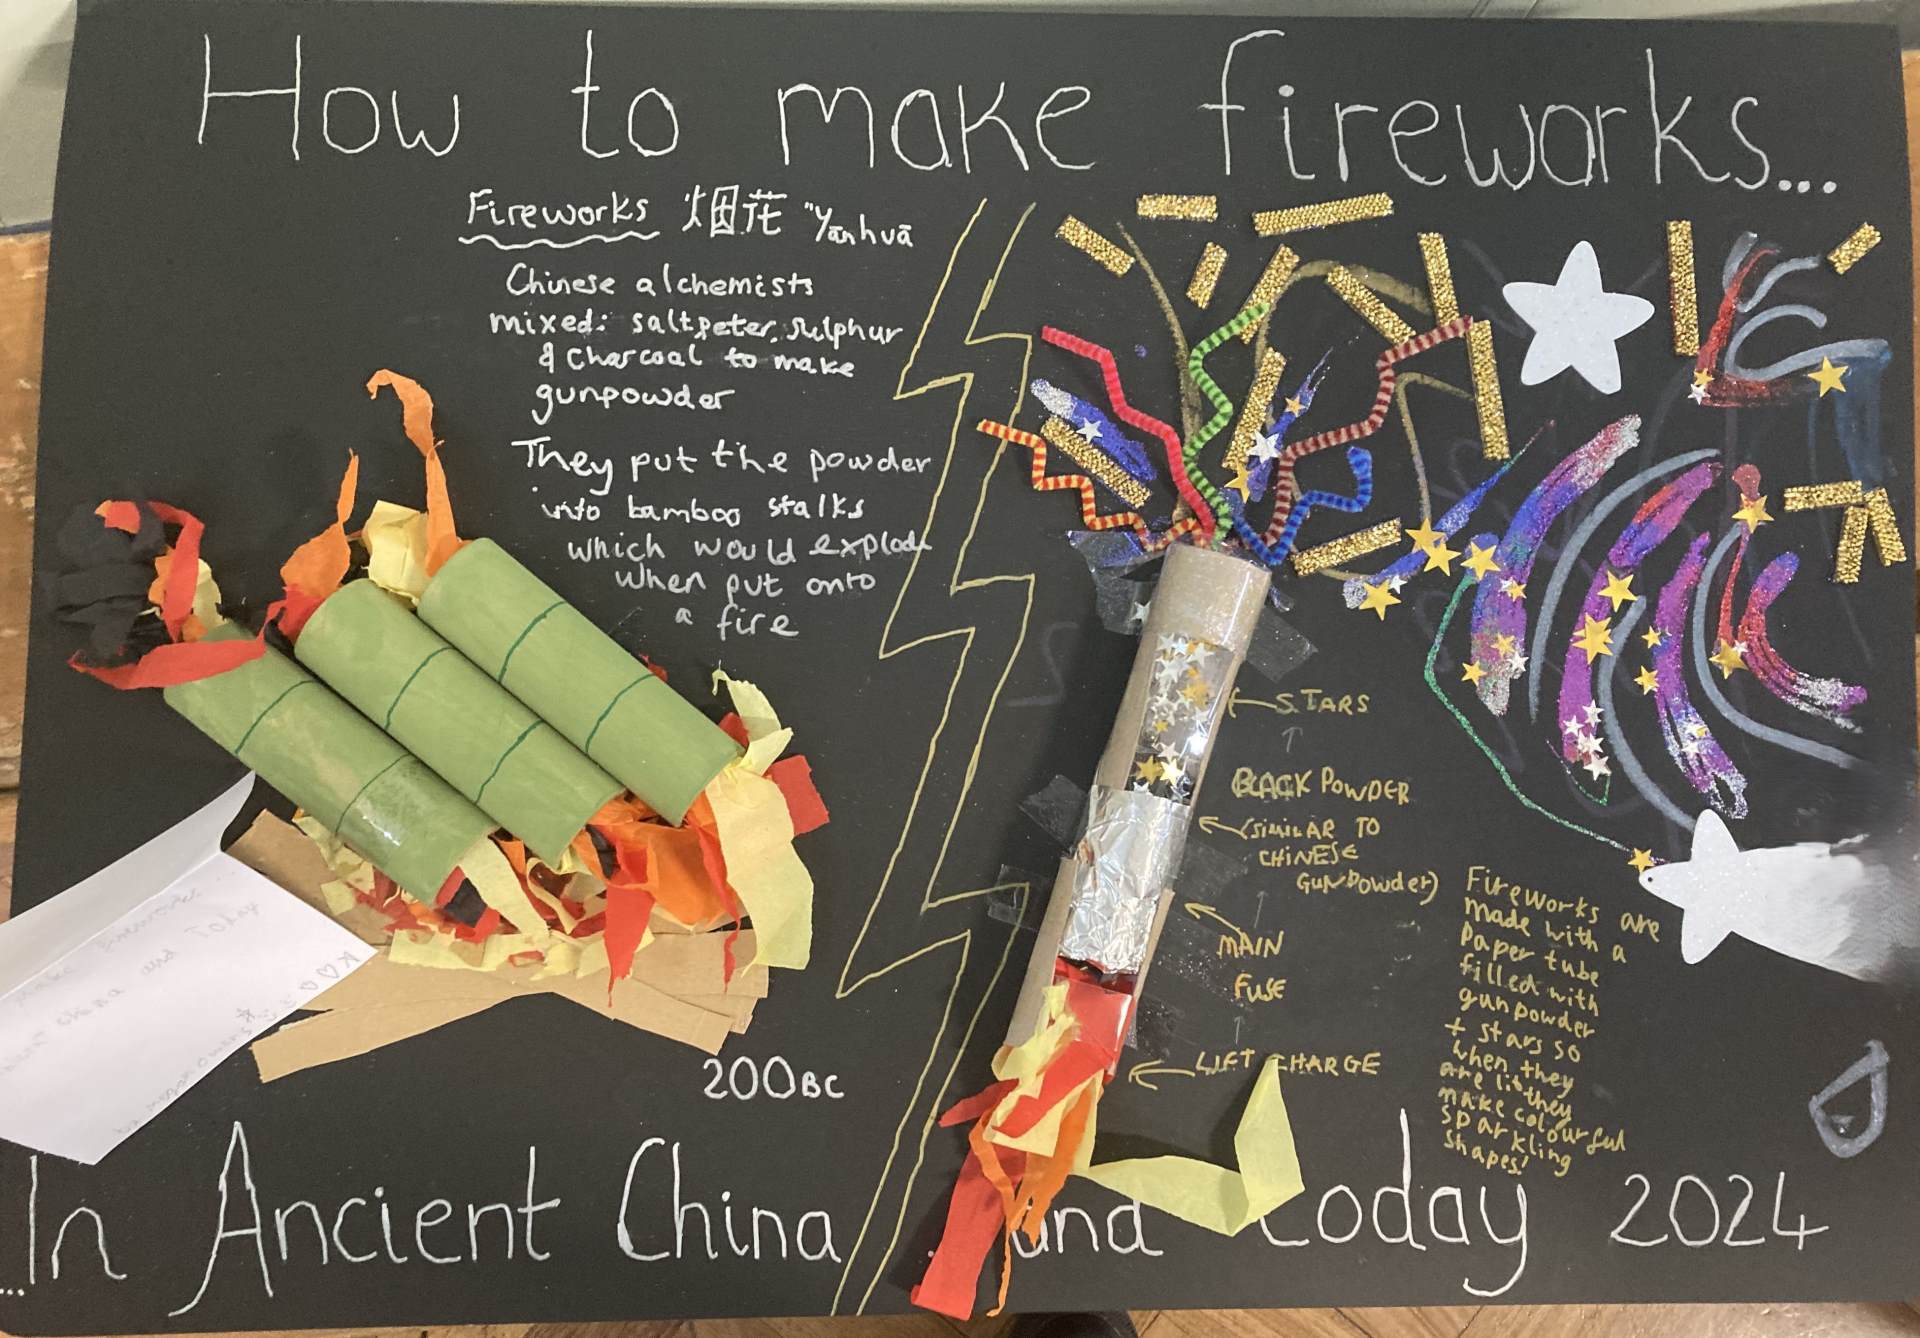 How to make fireworks...
Fireworks 烟花 "Yānhuā
Chinese alchemists
mixed: saltpeter, sulphur
& charcoal to make
gunpowder
They put the powder
into bamboo stalks
which would explode
when put onto
a fire
200BC
STARS
BLACK POWDER
(SIMILAR TO
CHINESE
GUNPOWDER)
MAIN
FUSE
LIFT CHARGE
Fireworks are
made with a
paper tube
filled with
gunpowder
+ stars so
when they
are lit they
make colourful
sparkling
shapes!
...In Ancient China and today 2024